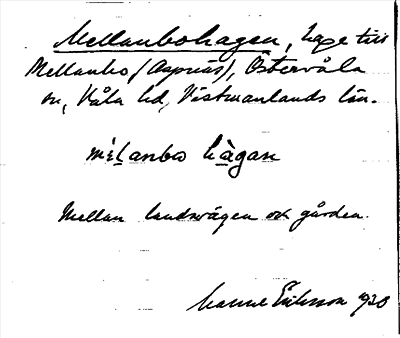 Mellanbohagen, hage till
Mellanbo (Aspnäs), Östervåla
sn, Våla hd, Västmanlands län.
mèlanbo hàgan
Mellan landsvägen och gården.
Manne Eriksson 1930